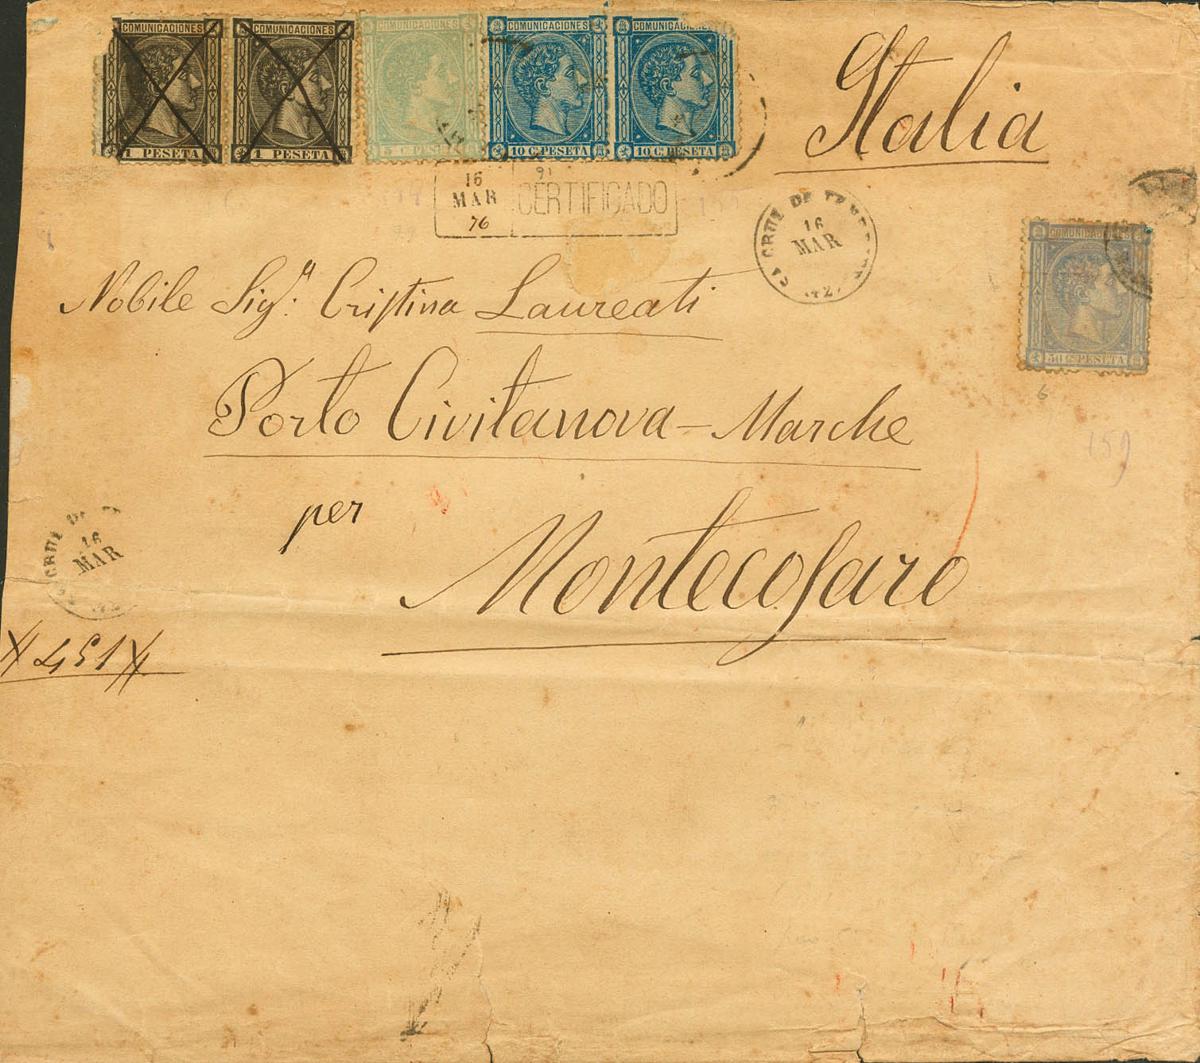 COMUNICACIONES COMUNICACIONES COMUNICACIONES COMUNICACIONES COMUNICACIONES
1 PESETA 1 PESETA 5 C. PESETA 10 C. PESETA 10 C. PESETA
Italia
16
MAR
76
91
CERTIFICADO
CRUZ DE TENERIFE
16
MAR
(42)
COMUNICACIONES
50 C. PESETA
6
Nobile Sigª. Cristina Laureati
Porto Civitanova - Marche
159
per
Montecosaro
CRUZ DE
16
MAR
451